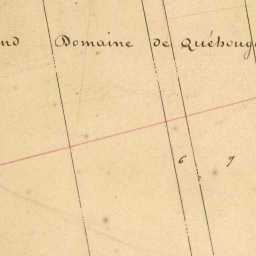 nd Domaine de Quéhoug
6 7
2